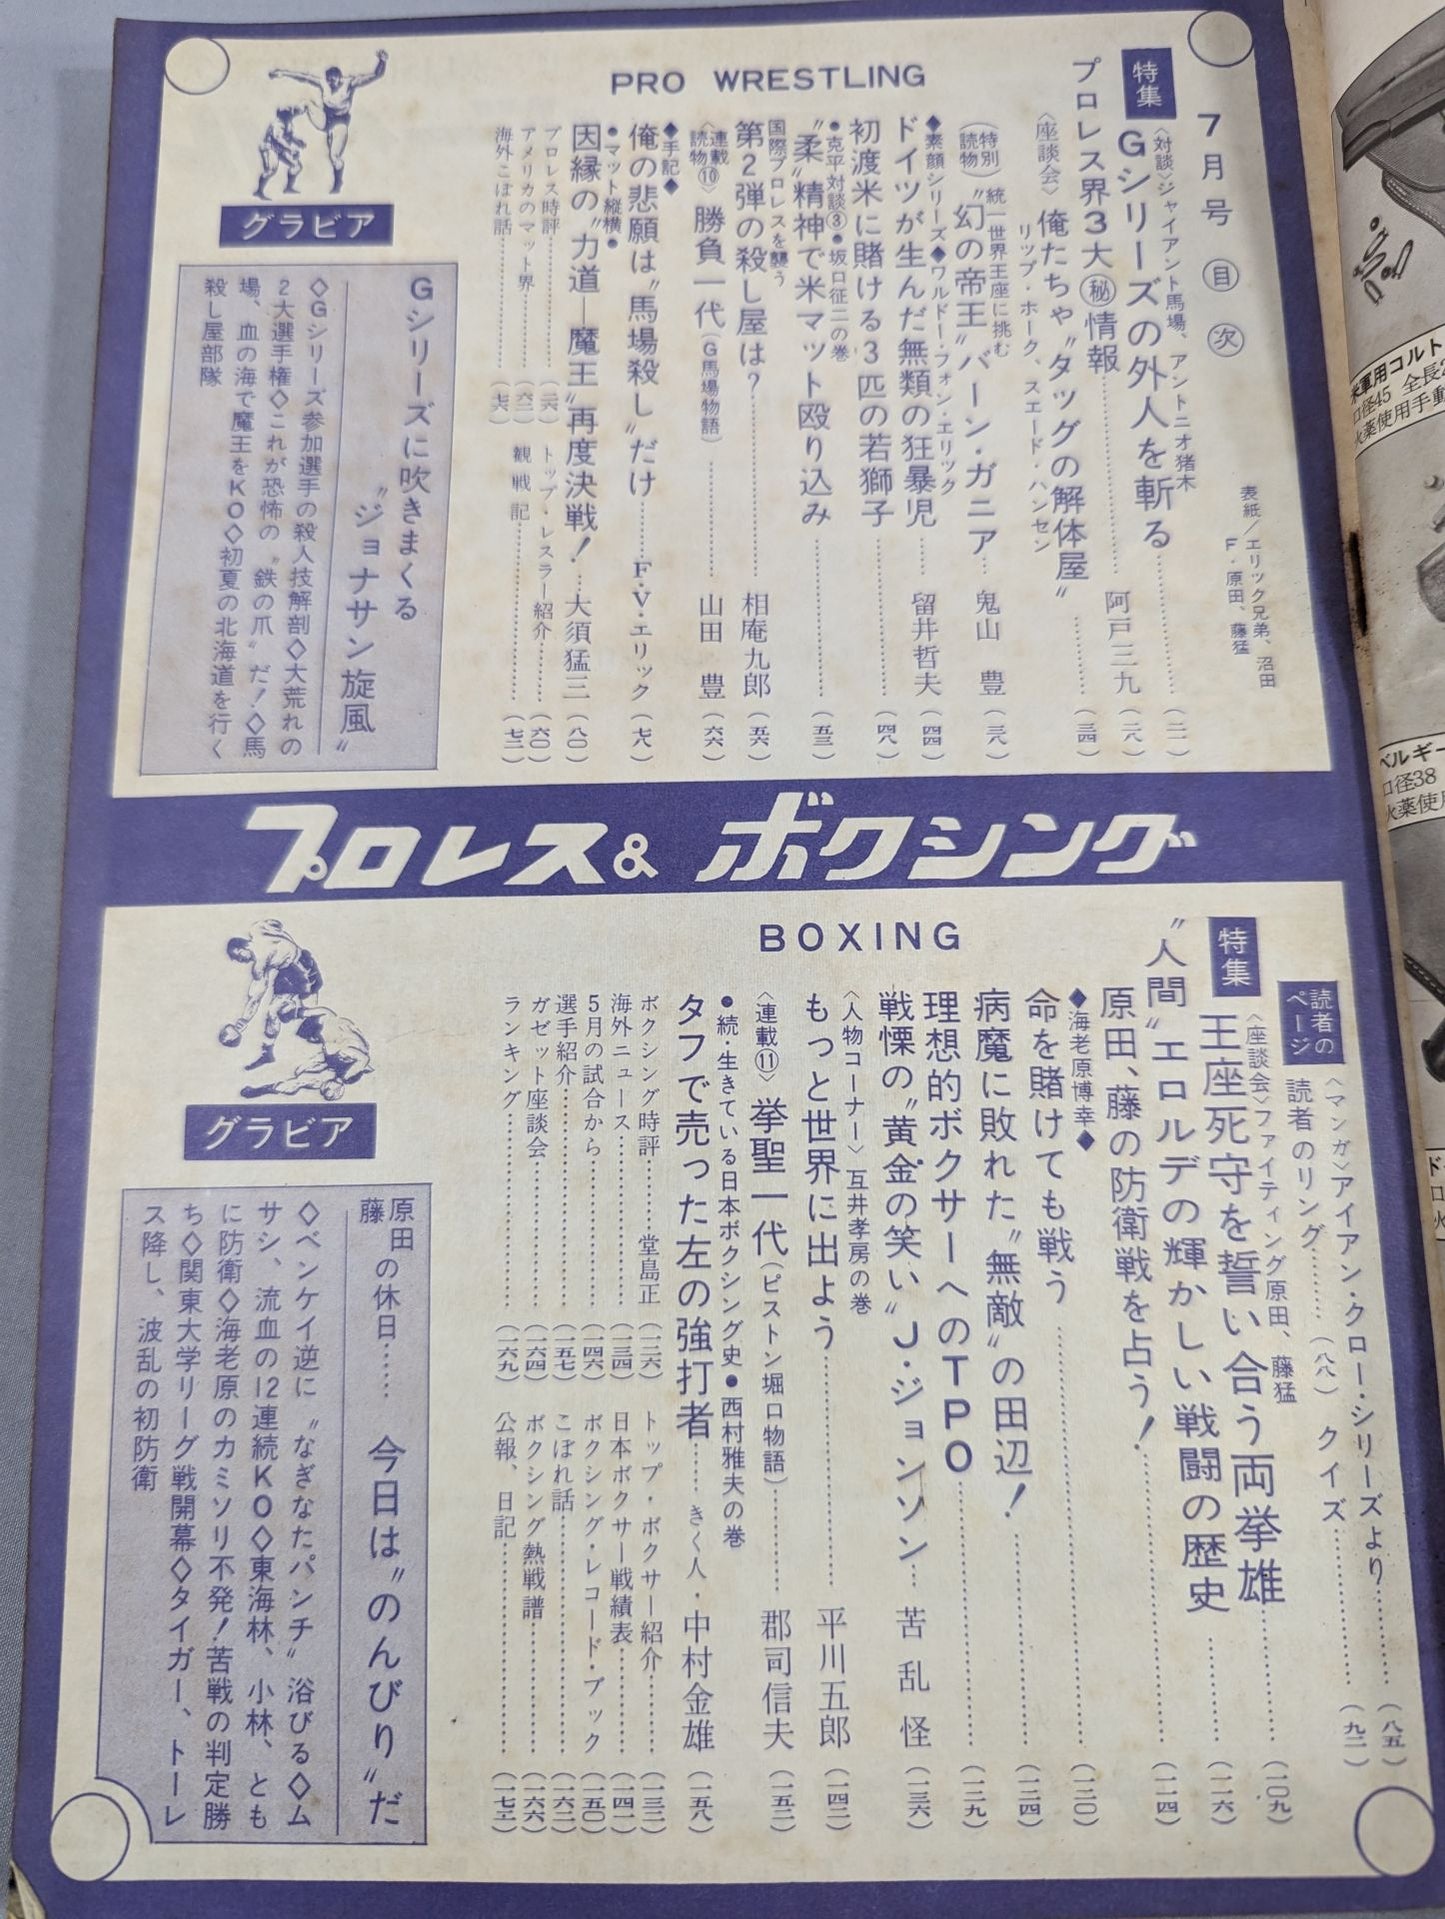 7月号 目次
表紙/エリック兄弟、沼田
F・原田、藤猛
PRO WRESTLING
特集
〈対談〉ジャイアント馬場、アントニオ猪木
Gシリーズの外人を斬る……(二一)
プロレス界3大㊙情報……阿戸三九(二八)
〈座談会〉俺たちゃ〝タッグの解体屋〟……(三四)
リップ・ホーク、スエード・ハンセン
(特別読物)統一世界王座に挑む
〝幻の帝王〟バーン・ガニア…鬼山 豊(三八)
◆素顔シリーズ◆ワルドー・フォン・エリック
ドイツが生んだ無類の狂暴児……留井哲夫(四四)
初渡米に賭ける3匹の若獅子……(四八)
●克平対談③●坂口征二の巻
〝柔〟精神で米マット殴り込み……(五三)
国際プロレスを襲う
第2弾の殺し屋は?……相庵九郎(五六)
〈連載読物⑩〉勝負一代(G馬場物語)……山田 豊(六六)
◆手記◆
俺の悲願は〝馬場殺し〟だけ……F・V・エリック(七八)
●マット縦横●
因縁の〝力道―魔王〟再度決戦!…大須猛三(八〇)
プロレス時評……(二六)
トップ・レスラー紹介……(六〇)
アメリカのマット界……(六二)
観戦記……(七二)
海外こぼれ話……(七六)
グラビア
Gシリーズに吹きまくる
〝ジョナサン旋風〟
◇Gシリーズ参加選手の殺人技解剖◇大荒れの
2大選手権◇これが恐怖の〝鉄の爪〟だ!◇馬
場、血の海で魔王をKO◇初夏の北海道を行く
殺し屋部隊
プロレス&ボクシング
BOXING
読者のページ
〈マンガ〉アイアン・クロー・シリーズより……(八五)
読者のリング……(八八)
クイズ……(九二)
特集
〈座談会〉ファイティング原田、藤猛
王座死守を誓い合う両挙雄……(一〇九)
〝人間〟エロルデの輝かしい戦闘の歴史……(一一六)
原田、藤の防衛戦を占う!……(一一四)
◆海老原博幸◆
命を賭けても戦う……(一二〇)
病魔に敗れた〝無敵〟の田辺!……(一二四)
理想的ボクサーへのTPO……(一二九)
戦慄の〝黄金の笑い〟J・ジョンソン…苦乱怪(一三六)
〈人物コーナー〉互井孝房の巻
もっと世界に出よう……平川五郎(一四二)
〈連載⑪〉挙聖一代(ピストン堀口物語)……郡司信夫(一五二)
●続・生きている日本ボクシング史●西村雅夫の巻
タフで売った左の強打者……きく人・中村金雄(一五八)
ボクシング時評……堂島正(一二六)
トップ・ボクサー紹介……(一三二)
海外ニュース……(一三四)
日本ボクサー戦績表……(一四一)
5月の試合から……(一四六)
ボクシング・レコード・ブック(一五〇)
選手紹介……(一五七)
こぼれ話……(一六二)
ガゼット座談会……(一六四)
ボクシング熱戦譜……(一六六)
ランキング……(一六九)
公報、日記……
グラビア
原田
藤
の休日……
今日は〝のんびり〟だ
◇ベンケイ逆に〝なぎなたパンチ〟浴びる◇ム
サシ、流血の12連続KO◇東海林、小林、とも
に防衛◇海老原のカミソリ不発!苦戦の判定勝
ち◇関東大学リーグ戦開幕◇タイガー、トーレ
ス降し、波乱の初防衛
米軍用コルト
口径45 全長2
火薬使用手動
ベルギー
口径38
火薬使用